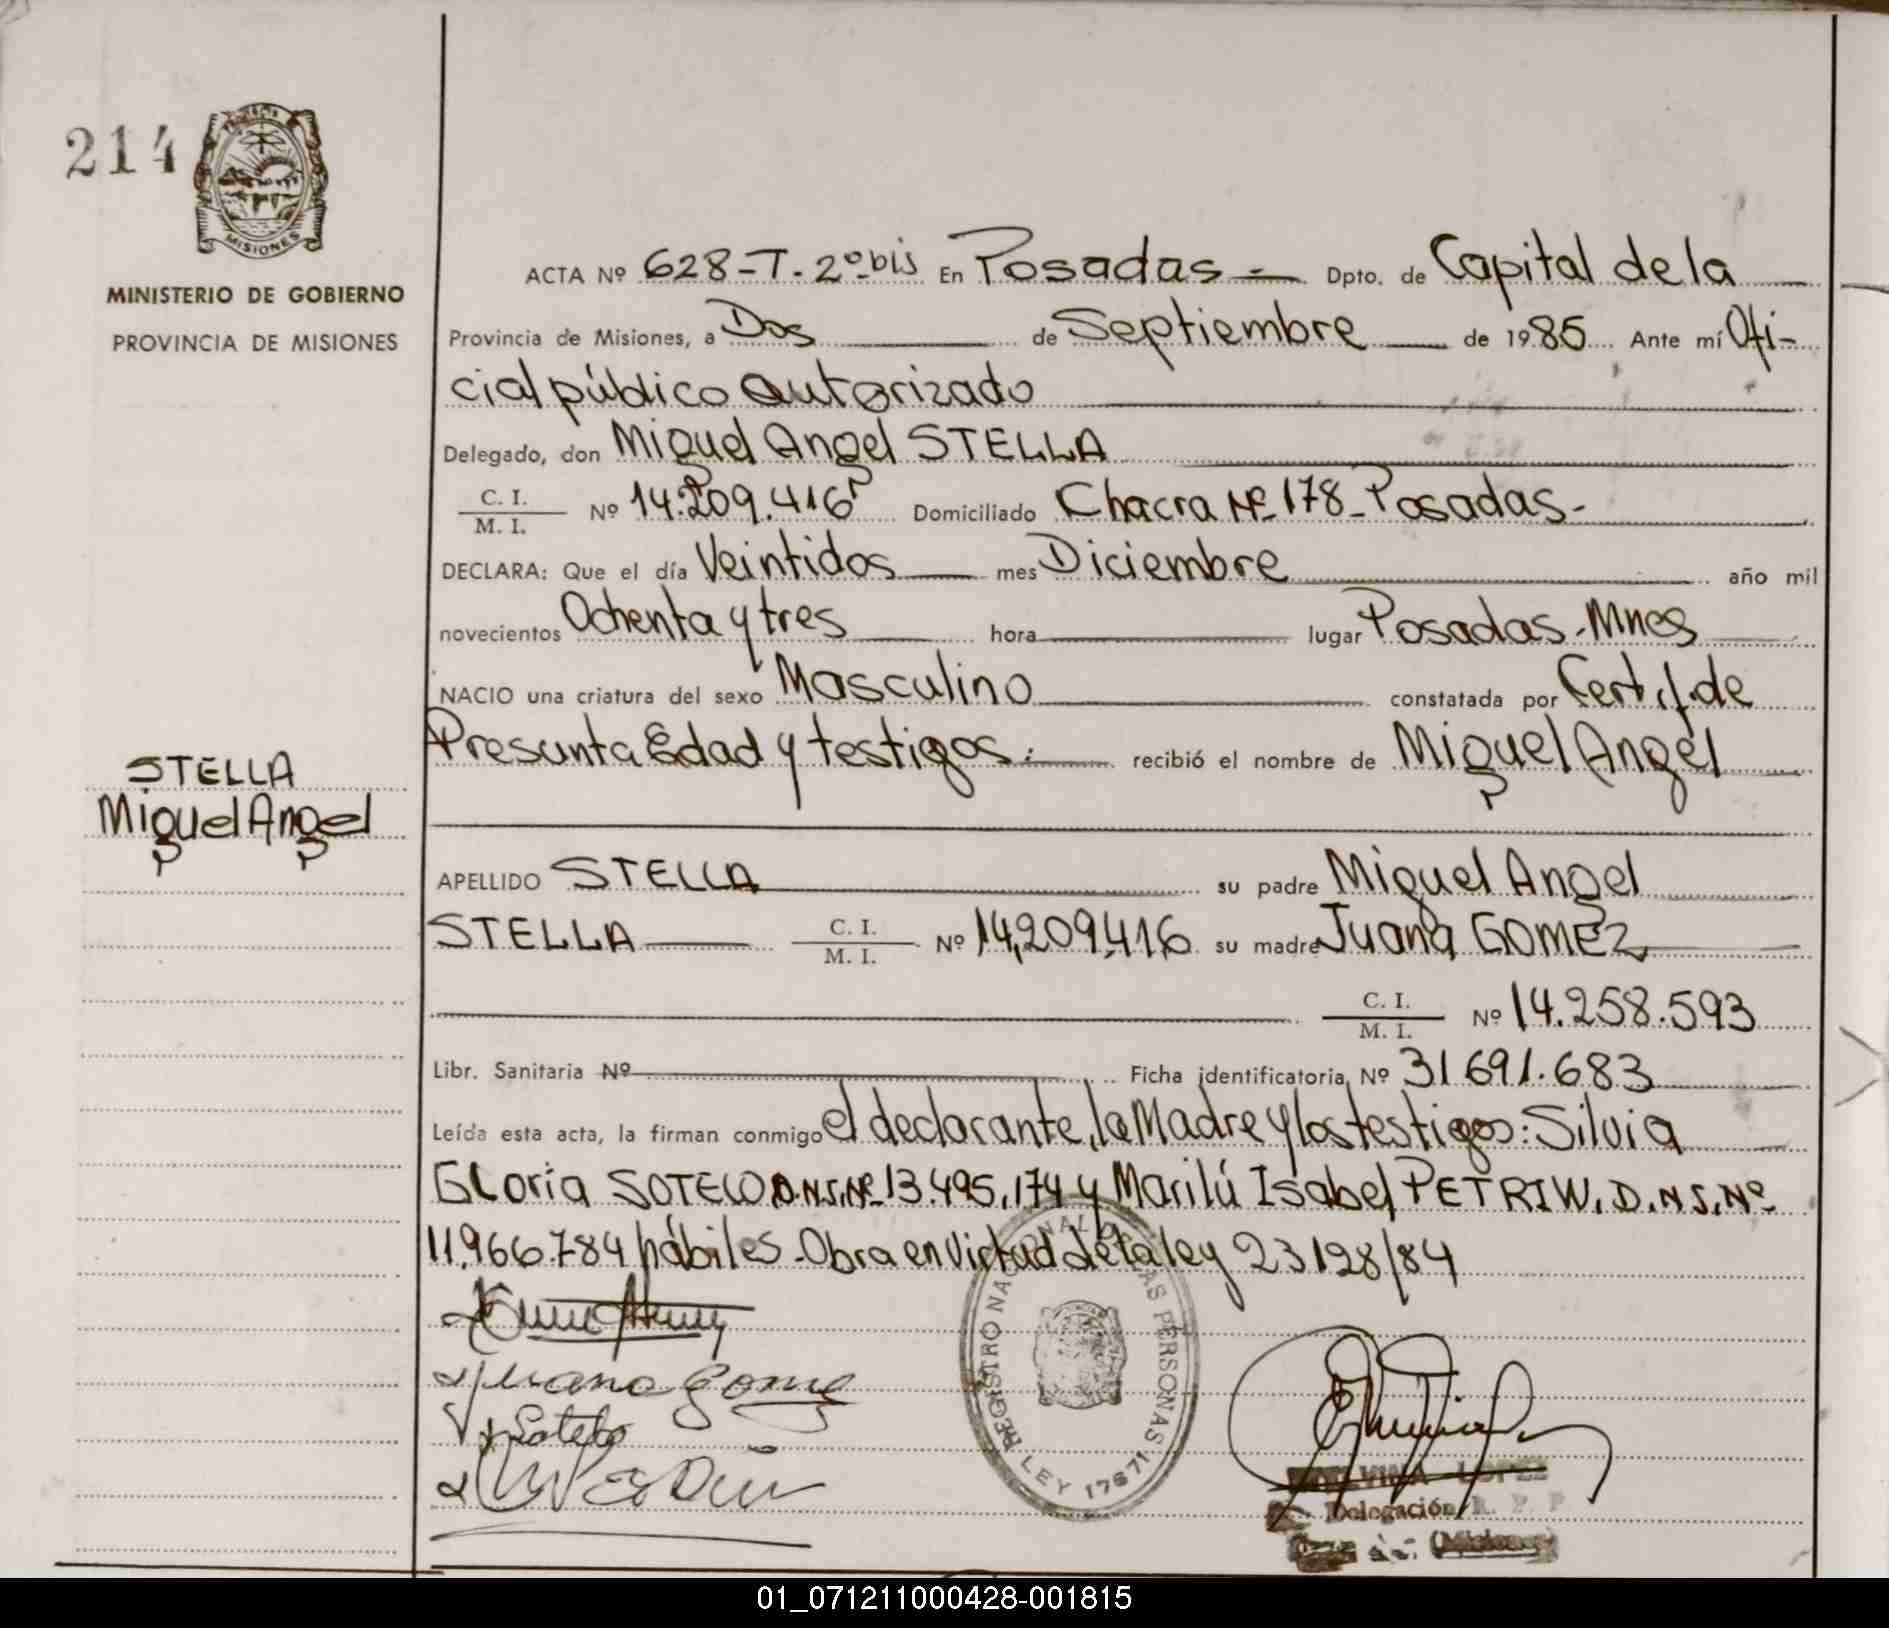 214
MISIONES
MINISTERIO DE GOBIERNO
PROVINCIA DE MISIONES
STELLA
Miguel Angel
ACTA Nº 628-T. 2º bis En Posadas.- Dpto. de Capital de la
Provincia de Misiones, a Dos de Septiembre de 1985 Ante mí Ofi-
cial público autorizado
Delegado, don Miguel Angel STELLA
C. I.
M. I.
Nº 14.209.416 Domiciliado Chacra Nº 178-Posadas-
DECLARA: Que el día Veintidos mes Diciembre año mil
novecientos Ochenta y tres hora lugar Posadas-Mnes
NACIO una criatura del sexo Masculino constatada por Certif. de
Presunta Edad y testigos.- recibió el nombre de Miguel Angel
APELLIDO STELLA su padre Miguel Angel
STELLA C. I. M. I. Nº 14,209,416 su madre Juana GOMEZ
C. I.
M. I.
Nº 14.258.593
Libr. Sanitaria Nº Ficha identificatoria Nº 31691.683
Leída esta acta, la firman conmigo el declarante, la Madre y los testigos: Silvia
Gloria SOTELO D.N.I. Nº 13.495.174 y Marilú Isabel PETRIW. D.N.I. Nº
11.966.784 hábiles-Obra en virtud de la ley 23128/84
Juana Gomez
Sotelo
REGISTRO NACIONAL DE LAS PERSONAS
LEY 17671
LOPEZ
Delegación R. P. P.
(Misiones)
01_071211000428-001815